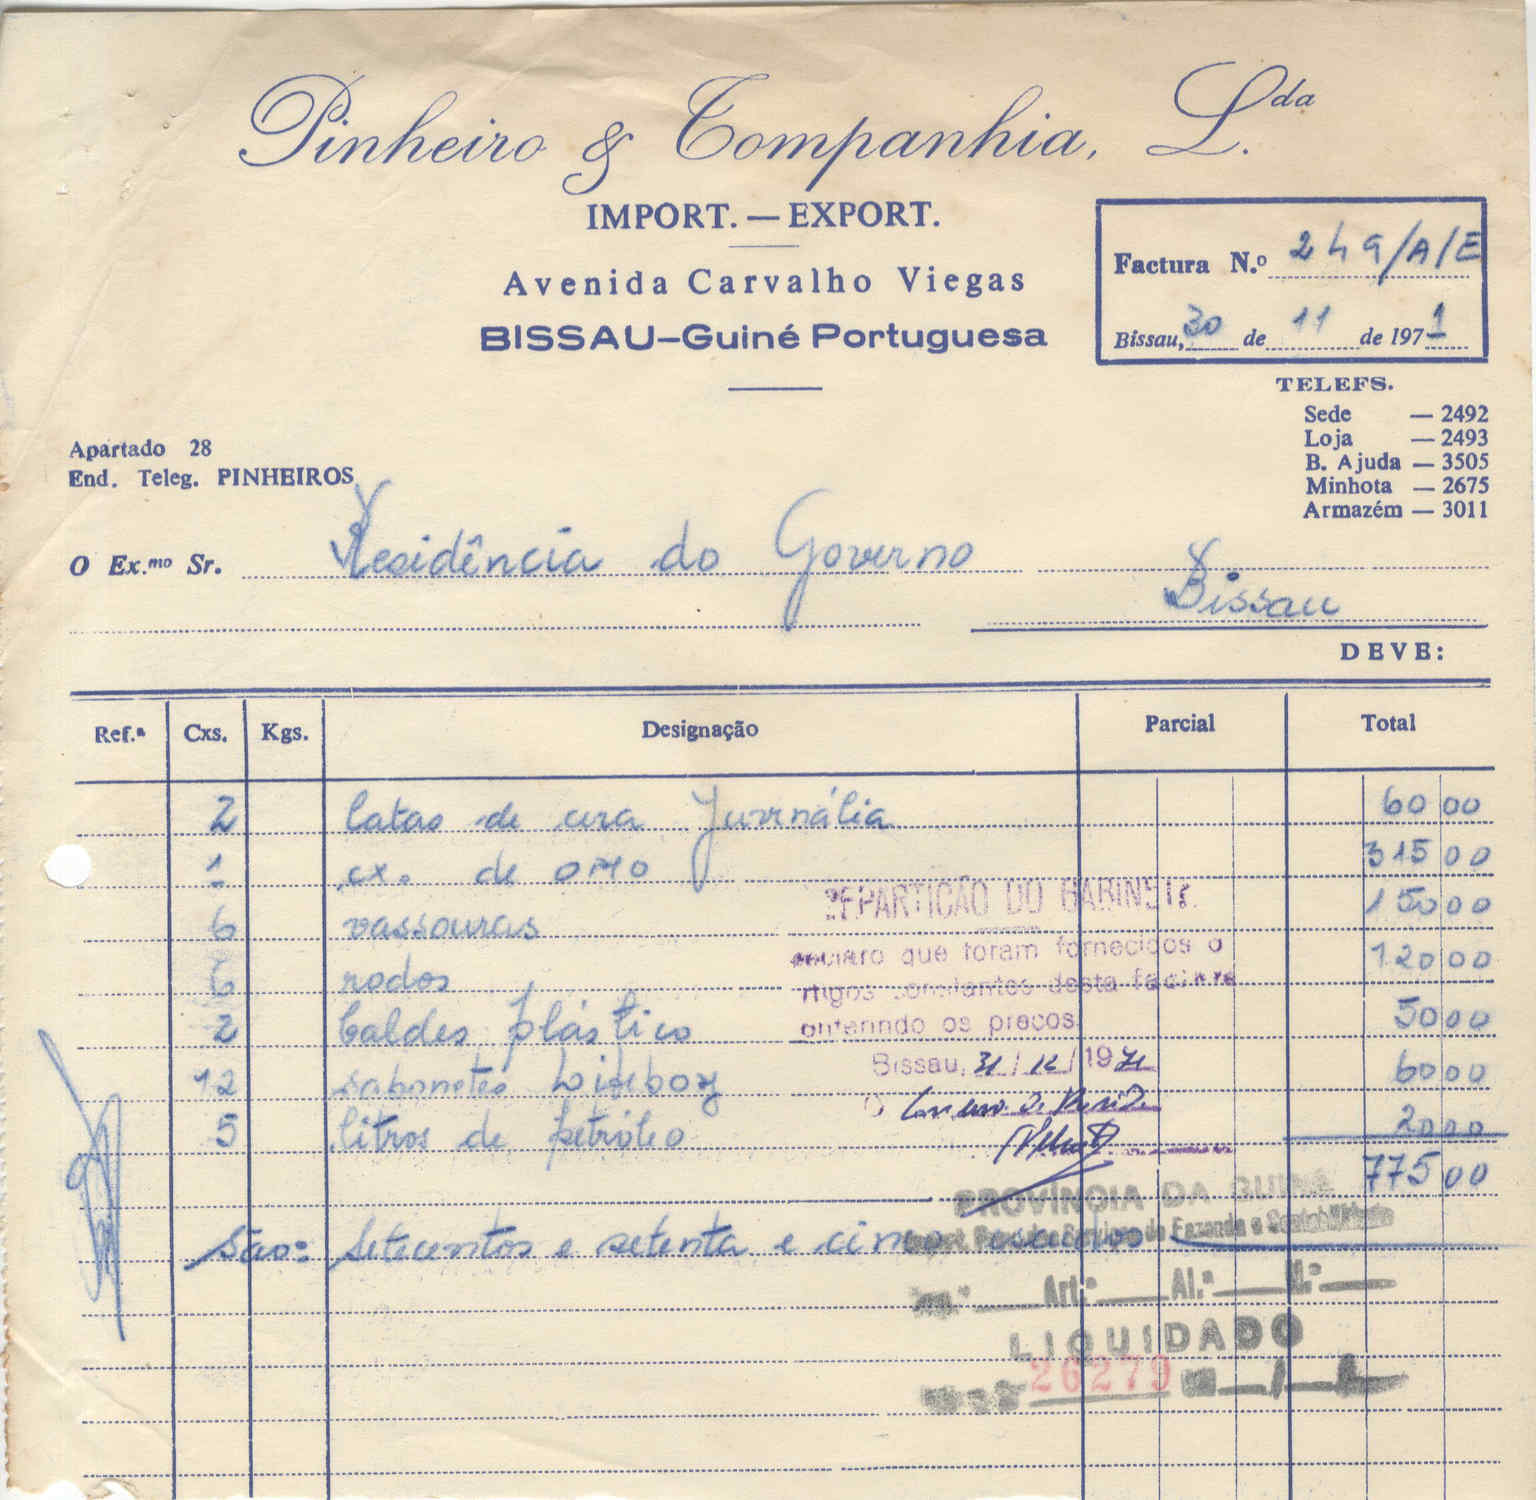 Pinheiro & Companhia, L.da
IMPORT. — EXPORT.
Avenida Carvalho Viegas
BISSAU–Guiné Portuguesa
Factura N.º 249/A/E
Bissau, 30 de 11 de 1971
TELEFS.
Sede — 2492
Loja — 2493
B. Ajuda — 3505
Minhota — 2675
Armazém — 3011
Apartado 28
End. Teleg. PINHEIROS
O Ex.mo Sr. Residência do Governo
Bissau
DEVE:
Ref.ª Cxs. Kgs. Designação Parcial Total
2 latas de cera Jurnália 60 00
1 cx. de OMO 315 00
6 vassouras 150 00
6 rodos 120 00
2 baldes plástico 50 00
12 sabonetes Lifeboy 60 00
5 litros de petróleo 20 00
775 00
São: Setecentos e setenta e cinco escudos
REPARTIÇÃO DO GABINETE
que foram fornecidos o
constantes desta factura
os preços
Bissau, 31/12/1971
O
PROVÍNCIA DA GUINÉ
Serviços de Fazenda e Contabilidade
Art.º Al.ª N.º
LIQUIDADO
26279